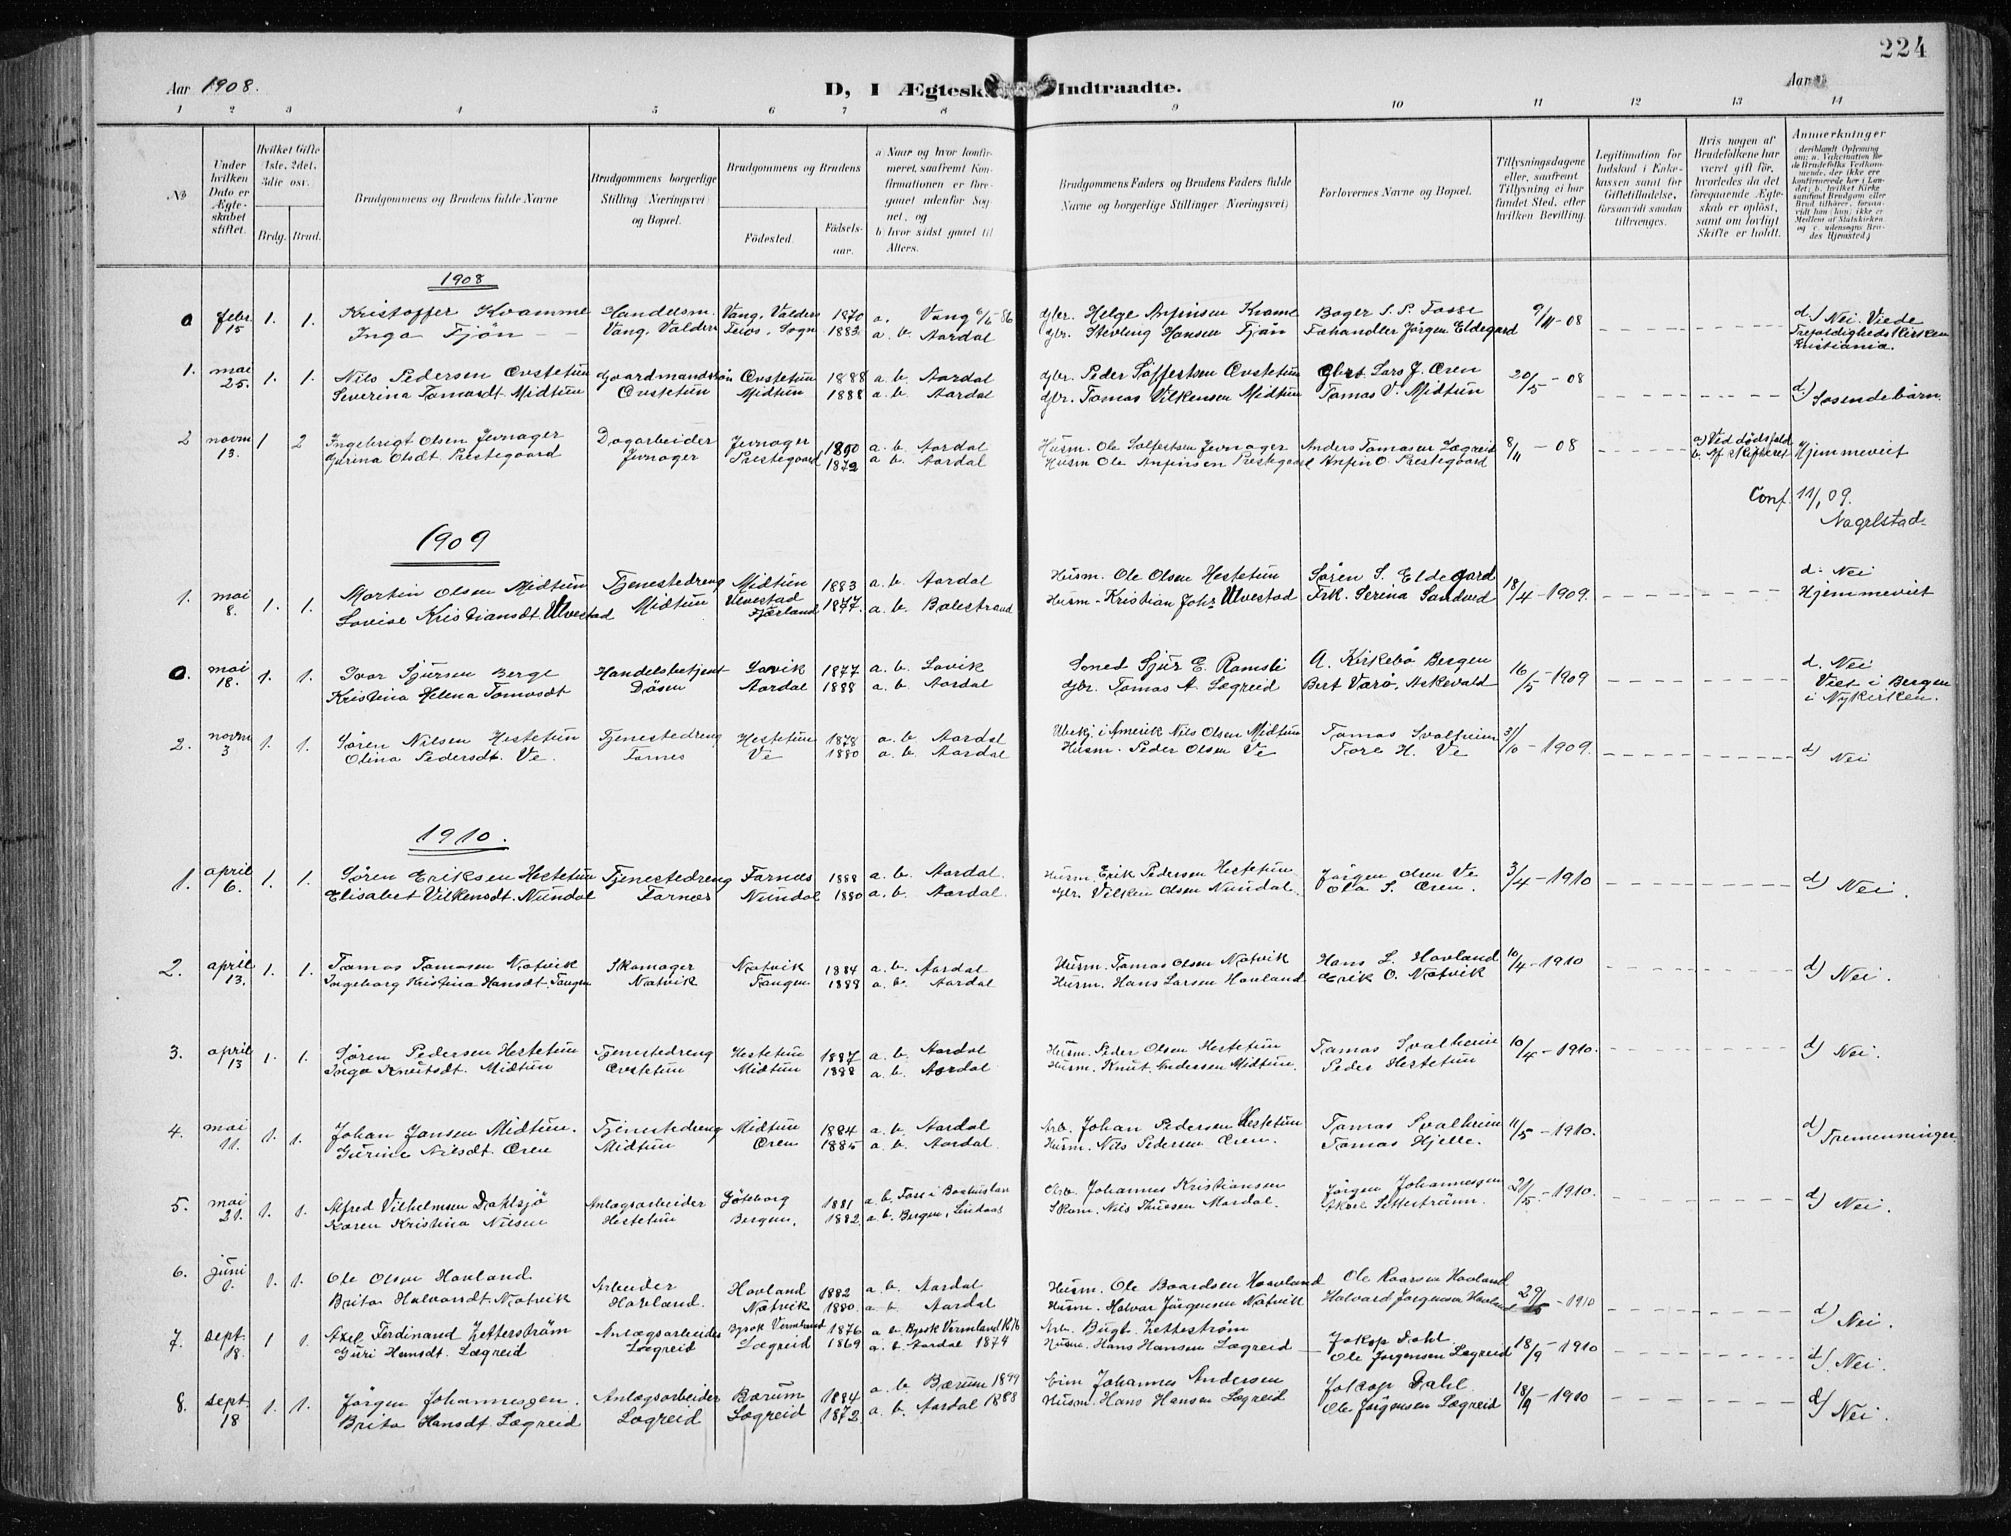 224
Aar 1908.
D, I Ægtesk
Indtraadte.
Aar
1 2 3 4 5 6 7 8 9 10 11 12 13 14
No
Under hvilken Dato er Ægteskabet stiftet.
Hvilket Gifte (1ste, 2det, 3die osv.
Brdg. Brud.
Brudgommens og Brudens fulde Navne
Brudgommens borgerlige Stilling (Næringsvei) og Bopæl.
Brudgommens og Brudens
Födested.
Födsels-aar.
a Naar og hvor konfirmeret, saafremt Konfirmationen er foregaaet udenfor Sognet, og
b) hvor sidst gaaet til Alters.
Brudgommens Faders og Brudens Faders fulde Navne og borgerlige Stillinger (Næringsvei)
Forlovernes Navne og Bopæl.
Tillysningsdagene eller, saafremt Tillysning ei har fundet Sted, efter hvilken Bevilling.
Legitimation for Indskud i Enkekassen samt for Giftetilladelse, forsaavidt saadan tiltrænges.
Hvis nogen af Brudefolkene har været gift för, hvorledes da det foregaaende Ægteskab er oplöst, samt om lovligt Skifte er holdt.
Anmerkninger
1908
0 febr. 15 1. 1. Kristoffer Kvamme Handelsm. Vang, Valders 1870 a. Vang 6/6-86 gbr. Helge Anfinsen Kvame Bager S. P. Fosse 9/11-08 d.) Nei. Viede
Inga Fjøn Vang, Valders Sogn 1883 a. b. Aardal gbr. Hansen Fjøn Fæhandler Jørgen Eldegard Trefoldighedskirken Kristiania.
1. mai 25. 1. 1. Nils Pedersen Øvstetun Gaardmandssøn Øvstetun 1888 a. b. Aardal gbr. Peder Øvstetun gbr. Lars J. Øren 20/5 - 08 d.)
Severina Tomasdt. Midtun Øvstetun Midtun 1888 a. b. Aardal gbr. Tomas Vilkensen Midtun Tomas V. Midtun Søsendebarn.
2 novm 13. 1 2 Ingebrigt Olsen Jevnager Dagarbeider Jevnager 1890 a. b. Aardal Husm. Ole Jevnager Anders Tomasen Lægreid 8/11 - 08 a) Ved dødsfald Hjemmeviet
Gurina Olsdt. Prestegaard Jevnager Prestegaard 1872 a. b. Aardal Husm Ole Anfinsen Prestegaard Anfin O. Prestegaard b. Af skifteret
Conf. 11/1 09.
Nagelstad.
1909
1. mai 8. 1. 1. Martin Olsen Midtun Tjenestedreng Midtun 1883 a. b. Aardal Husm. Ole Olsen Hestetun Søren S. Eldegard 18/4 - 1909. d. Nei
Lovise Kristiansdt. Ulvestad Midtun Ulvestad Fjærland 1877. a. b. Balestrand Husm. Kristian Johs Ulvestad Frk. Serina Sandved Hjemmeviet
0. mai 18. 1. 1. Ivar Sjursen Berge Handelsbetjent Lavik 1877 a. b. Lavik Sjur E. Ramsli A. Kirkebø Bergen 16/5 - 1909 d. Nei
Kristina Helena Tomasdt Døsen Aardal 1888 a. b. Aardal gbr. Tomas A. Lægreid Bert Varø, Askevold Viet i Bergen
i Nykirken.
2. novm 3 1. 1. Søren Nilsen Hestetun Tjenestedreng Hestetun 1878 a. b. Aardal i Amerik Nils Olsen Midtun Tomas Svalheim 31/10 - 1909. d)
Olina Pedersdt. Ve. Farnes Ve 1880 a. b. Aardal Husm. Peder Olsen Ve Tore H. Ve Nei
1910.
1. april 6. 1. 1. Søren Eriksen Hestetun Tjenestedreng Farnes 1888 a. b. Aardal. Husm. Erik Pedersen Hestetun Jørgen Olsen Ve 3/4 - 1910 d)
Elisabet Vilkensdt. Nundal Farnes Nundal 1880 a. b. Aardal. gbr. Vilken Olsen Nundal. Ola S. Øren. Nei.
2. april 13. 1. 1. Tomas Tomasen Natvik Skomager Natvik 1884 a. b. Aardal Husm. Tomas Olsen Natvik Hans L. Hovland 10/4 - 1910 d)
Ingeborg Kristina Hansdt. Tangen Natvik Tangen 1888 a. b. Aardal Husm. Hans Larsen Hovland Erik O. Natvik Nei.
3. april 13 1. 1. Søren Pedersen Hestetun Tjenestedreng Hestetun 1887 a. b. Aardal Husm. Peder Olsen Hestetun Tomas Svalheim 10/4 - 1910. d)
Inga Knutsdt. Midtun Øvstetun Midtun 1888 a. b. Aardal Husm. Knut Andersen Midtun. Peder Hestetun Nei.
4. mai 11. 1. 1. Johan Jansen Midtun. Tjenestedreng Midtun 1884 a. b. Aardal Arb. Johan Pedersen Hestetun Tomas Svalheim 11/5 - 1910. d)
Gurine Nilsdt. Øren Midtun Øren 1885 a. b. Aardal. Husm. Nils Pedersen Øren. Tomas Hjelle. Tremenninger
5. mai 21. 1. 1. Alfred Vilhelmsen Dahlsjö Anlægsarbeider Göteborg 1881 a. b. Foss i Bohuslän Arb. Johannes Kristiansen Jørgen Johannessen 21/5 - 1910. d)
Karen Kristina Nilsen Hestetun Bergen. 1882 a. b. Bergen, Lindaas Skom. Nils Aardal. Nei.
6. juni 1. 1. 1. Ole Olsen Hovland Arbeider Hovland 1882 a. b. Aardal Husm. Ole Baardsen Hovland Ole Hovland 29/5 - 1910
Brita Halvardt. Natvik Hovland. Natvik 1880. a. b. Aardal Husm. Halvar Jørgensen Natvik Halvard Jørgensen Hovland d) Nei.
7. sept. 18. 1 1 Axel Ferdinand Zetterström Anlægsarbeider Vermland 1876 a. b. Vermland Arb. Bugt. Zetteström Jakop Dahl. 18/9 - 1910
Guri Hansdt. Lægreid Lægreid Lægreid 1869 a. b. Aardal 1874 Husm. Hans Hansen Lægreid Ole Jørgensen Lægreid d). Nei.
8. sept. 18 1. 1. Jørgen Johannessen. Anlægsarbeider Bærum 1884 a. b. Bærum 1899 Johannes Andersen Jakop Dahl. 18/9 - 1910 d)
Brita Hansdt Lægreid Lægreid Lægreid 1872 a. b. Aardal 1888 Husm. Hans Hansen Lægreid Ole Jørgensen Lægreid Nei.